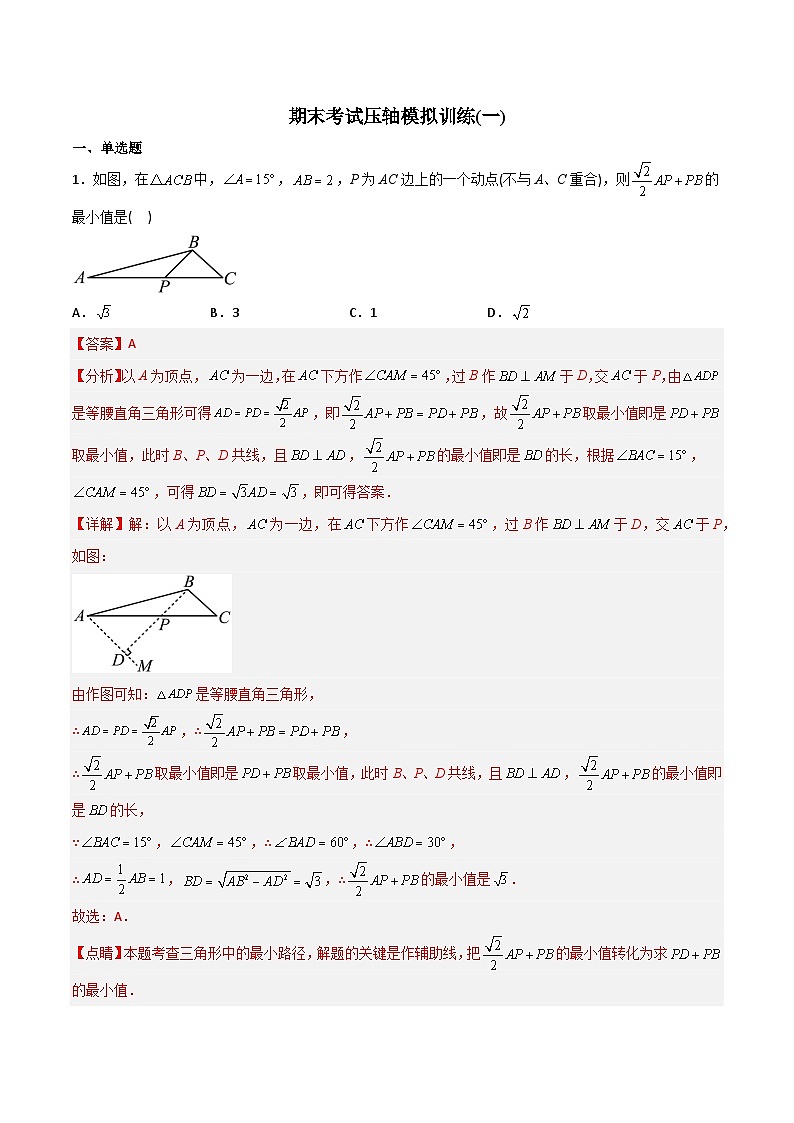 期末考试压轴模拟训练(一)
一、单选题
1．如图，在△ACB中，∠A=15°，AB=2，P为AC边上的一个动点(不与A、C重合)，则√2/2 AP+PB的
最小值是(　)
B
A P C
A．√3　B．3　C．1　D．√2
【答案】A
【分析】以A为顶点，AC为一边，在AC下方作∠CAM=45°，过B作BD⊥AM于D，交AC于P，由△ADP
是等腰直角三角形可得AD=PD=√2/2 AP，即√2/2 AP+PB=PD+PB，故√2/2 AP+PB取最小值即是PD+PB
取最小值，此时B、P、D共线，且BD⊥AD，√2/2 AP+PB的最小值即是BD的长，根据∠BAC=15°，
∠CAM=45°，可得BD=√3AD=√3，即可得答案．
【详解】解：以A为顶点，AC为一边，在AC下方作∠CAM=45°，过B作BD⊥AM于D，交AC于P，
如图：
B
A P C
D M
由作图可知：△ADP是等腰直角三角形，
∴AD=PD=√2/2 AP，∴√2/2 AP+PB=PD+PB，
∴√2/2 AP+PB取最小值即是PD+PB取最小值，此时B、P、D共线，且BD⊥AD，√2/2 AP+PB的最小值即
是BD的长，
∵∠BAC=15°，∠CAM=45°，∴∠BAD=60°，∴∠ABD=30°，
∴AD=1/2 AB=1，BD=√(AB²−AD²)=√3，∴√2/2 AP+PB的最小值是√3．
故选：A．
【点睛】本题考查三角形中的最小路径，解题的关键是作辅助线，把√2/2 AP+PB的最小值转化为求PD+PB
的最小值．